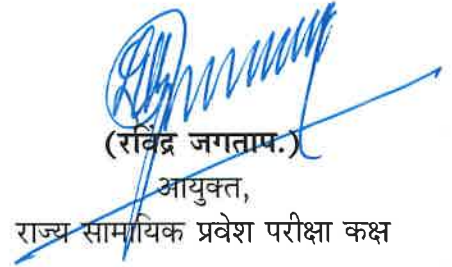 (रविंद्र जगताप.)
आयुक्त,
राज्य सामायिक प्रवेश परीक्षा कक्ष